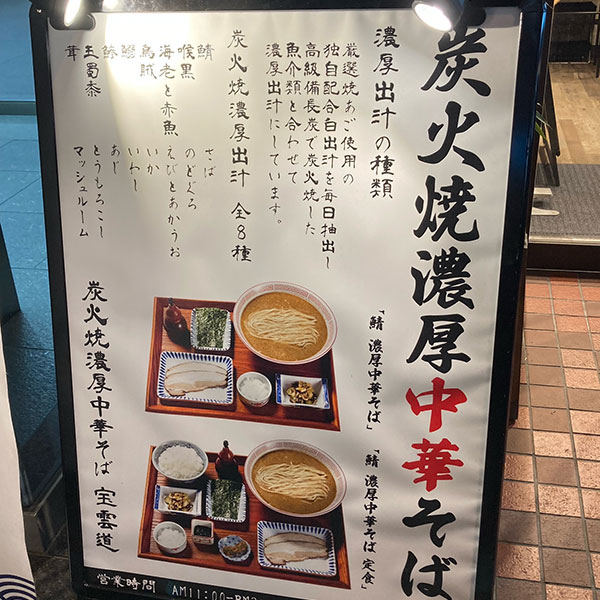 炭火焼濃厚中華そば
濃厚出汁の種類
厳選焼あご使用の
独自配合白出汁を毎日抽出し
高級備長炭で炭火焼した
魚介類と合わせて
濃厚出汁にしています。
炭火焼濃厚出汁 全8種
鯖 さば
喉黒 のどぐろ
海老と赤魚 えびとあかうお
烏賊 いか
鰯 いわし
鯵 あじ
玉蜀黍 とうもろこし
茸 マッシュルーム
「鯖 濃厚中華そば」
「鯖 濃厚中華そば 定食」
炭火焼濃厚中華そば 宝雲道
営業時間 AM11:00-PM